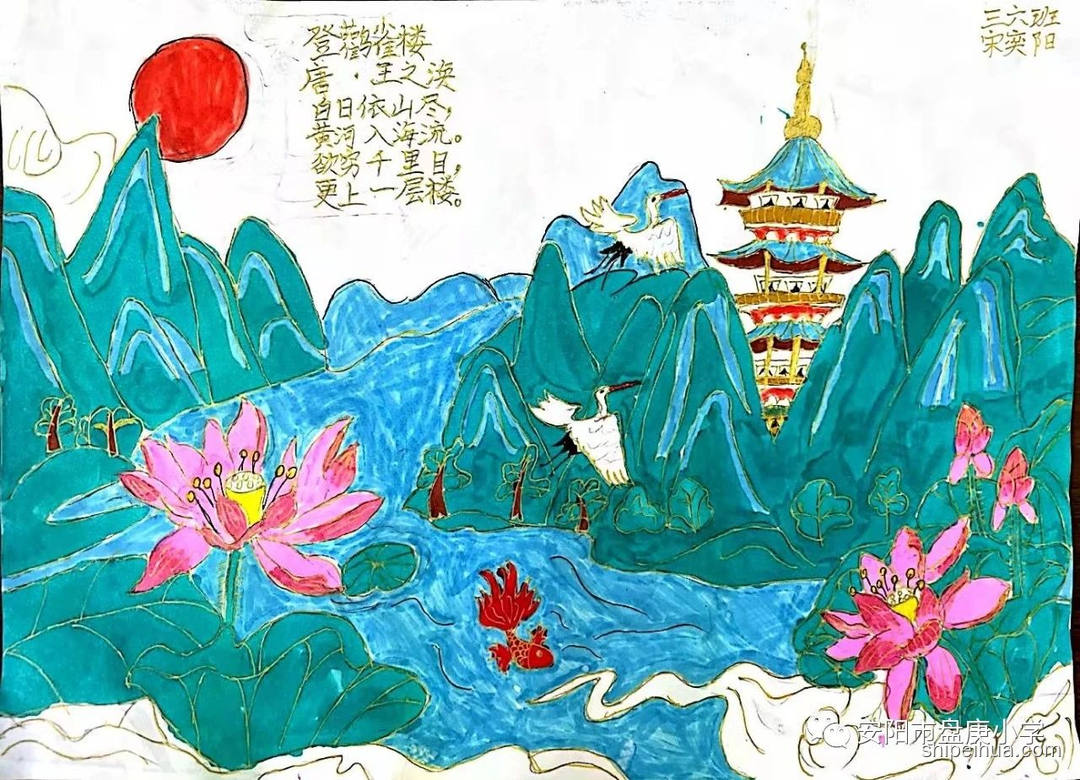 登鹳雀楼
唐·王之涣
白日依山尽，
黄河入海流。
欲穷千里目，
更上一层楼。
三六班
宋奕阳
安阳市盘庚小学
shipeihua.com